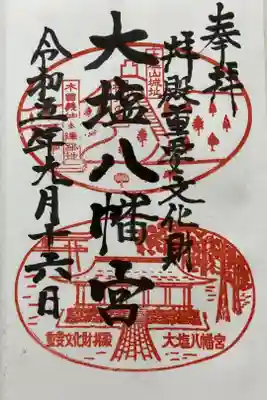 奉拝
拝殿重要文化財
大塩八幡宮
令和五年九月十六日
山城址
木曽義仲
重要文化財拝殿
大塩八幡宮